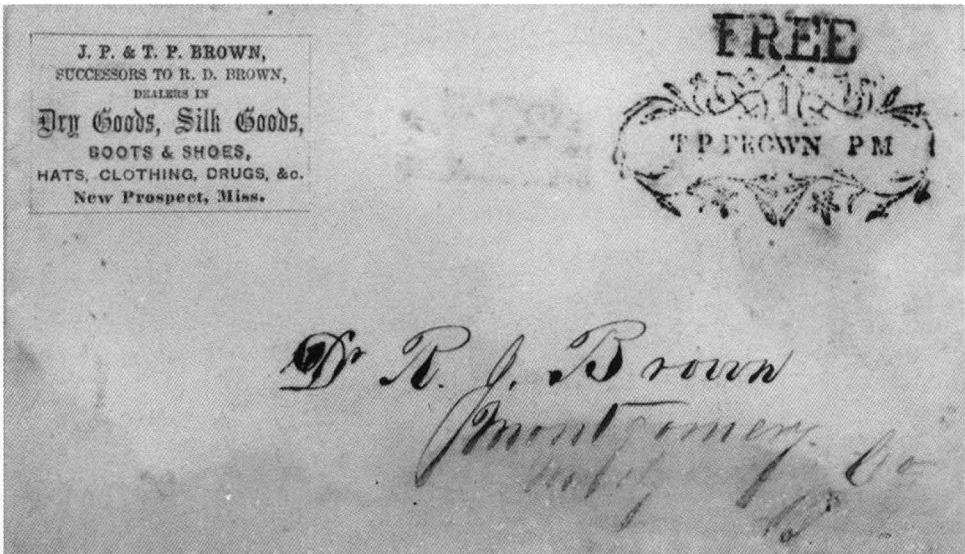 J. P. & T. P. BROWN,
SUCCESSORS TO R. D. BROWN,
DEALERS IN
Dry Goods, Silk Goods,
BOOTS & SHOES,
HATS, CLOTHING, DRUGS, &c.
New Prospect, Miss.
FREE
T P BROWN PM
Dr R. J. Brown
Montgomery
Co